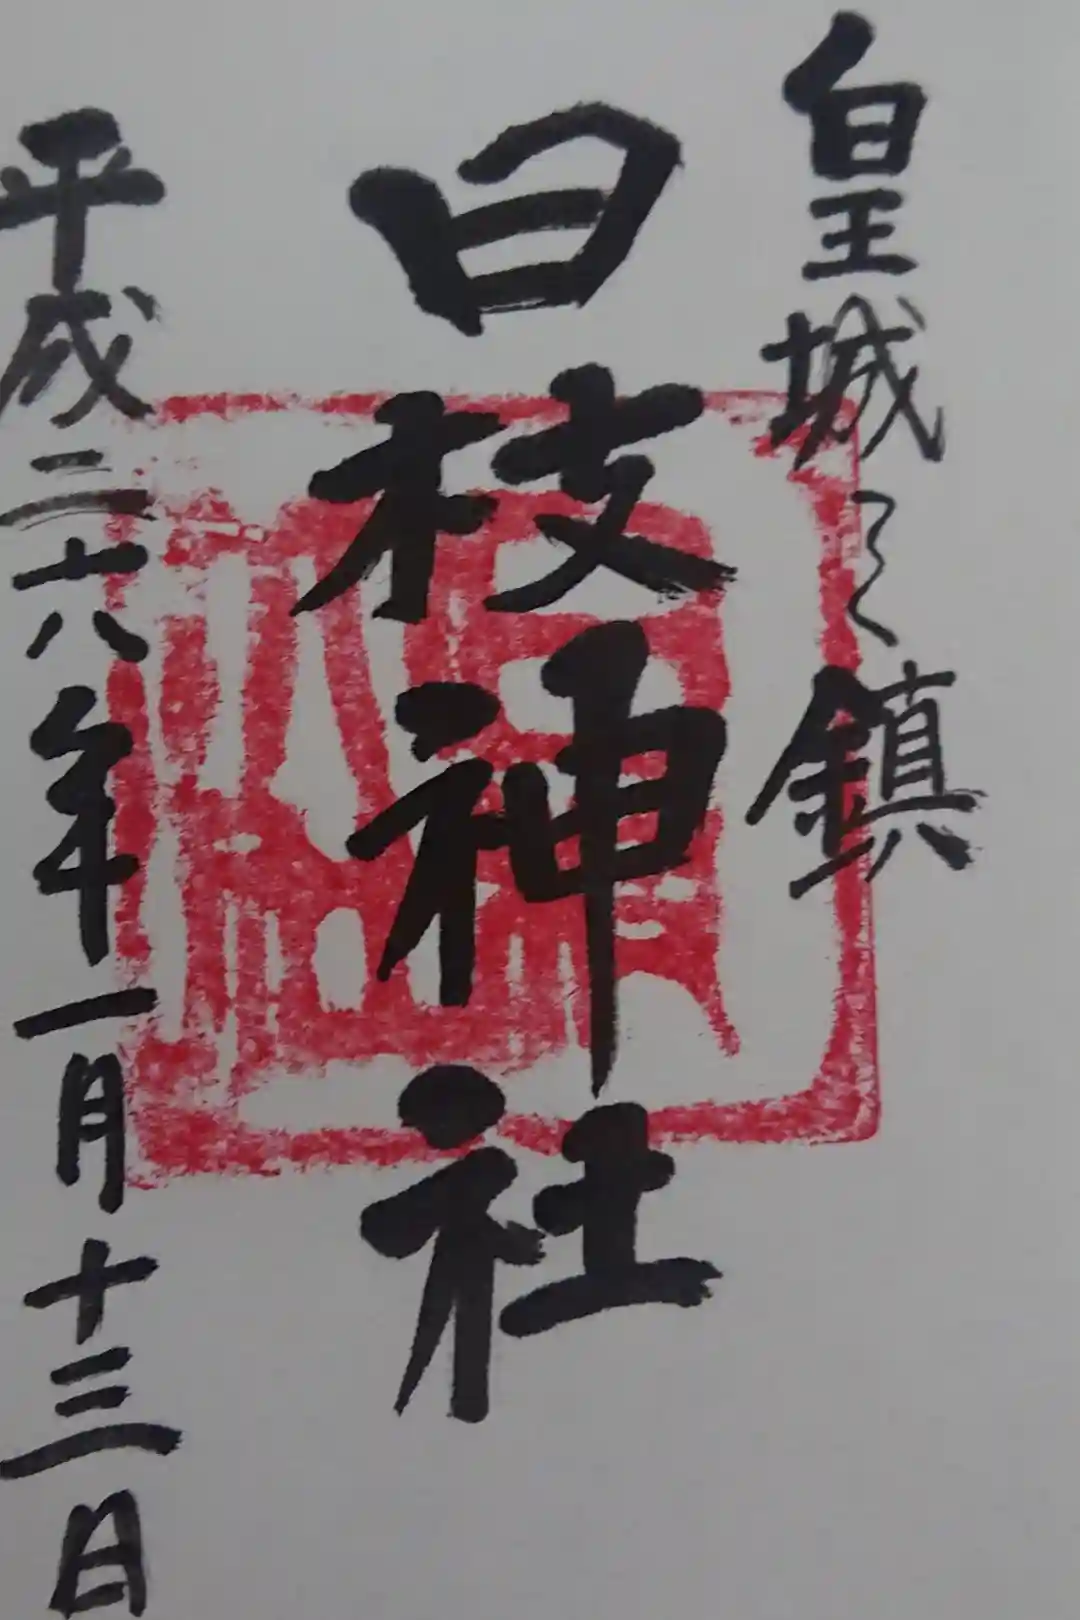 皇城之鎮
日枝神社
平成二十六年一月十三日